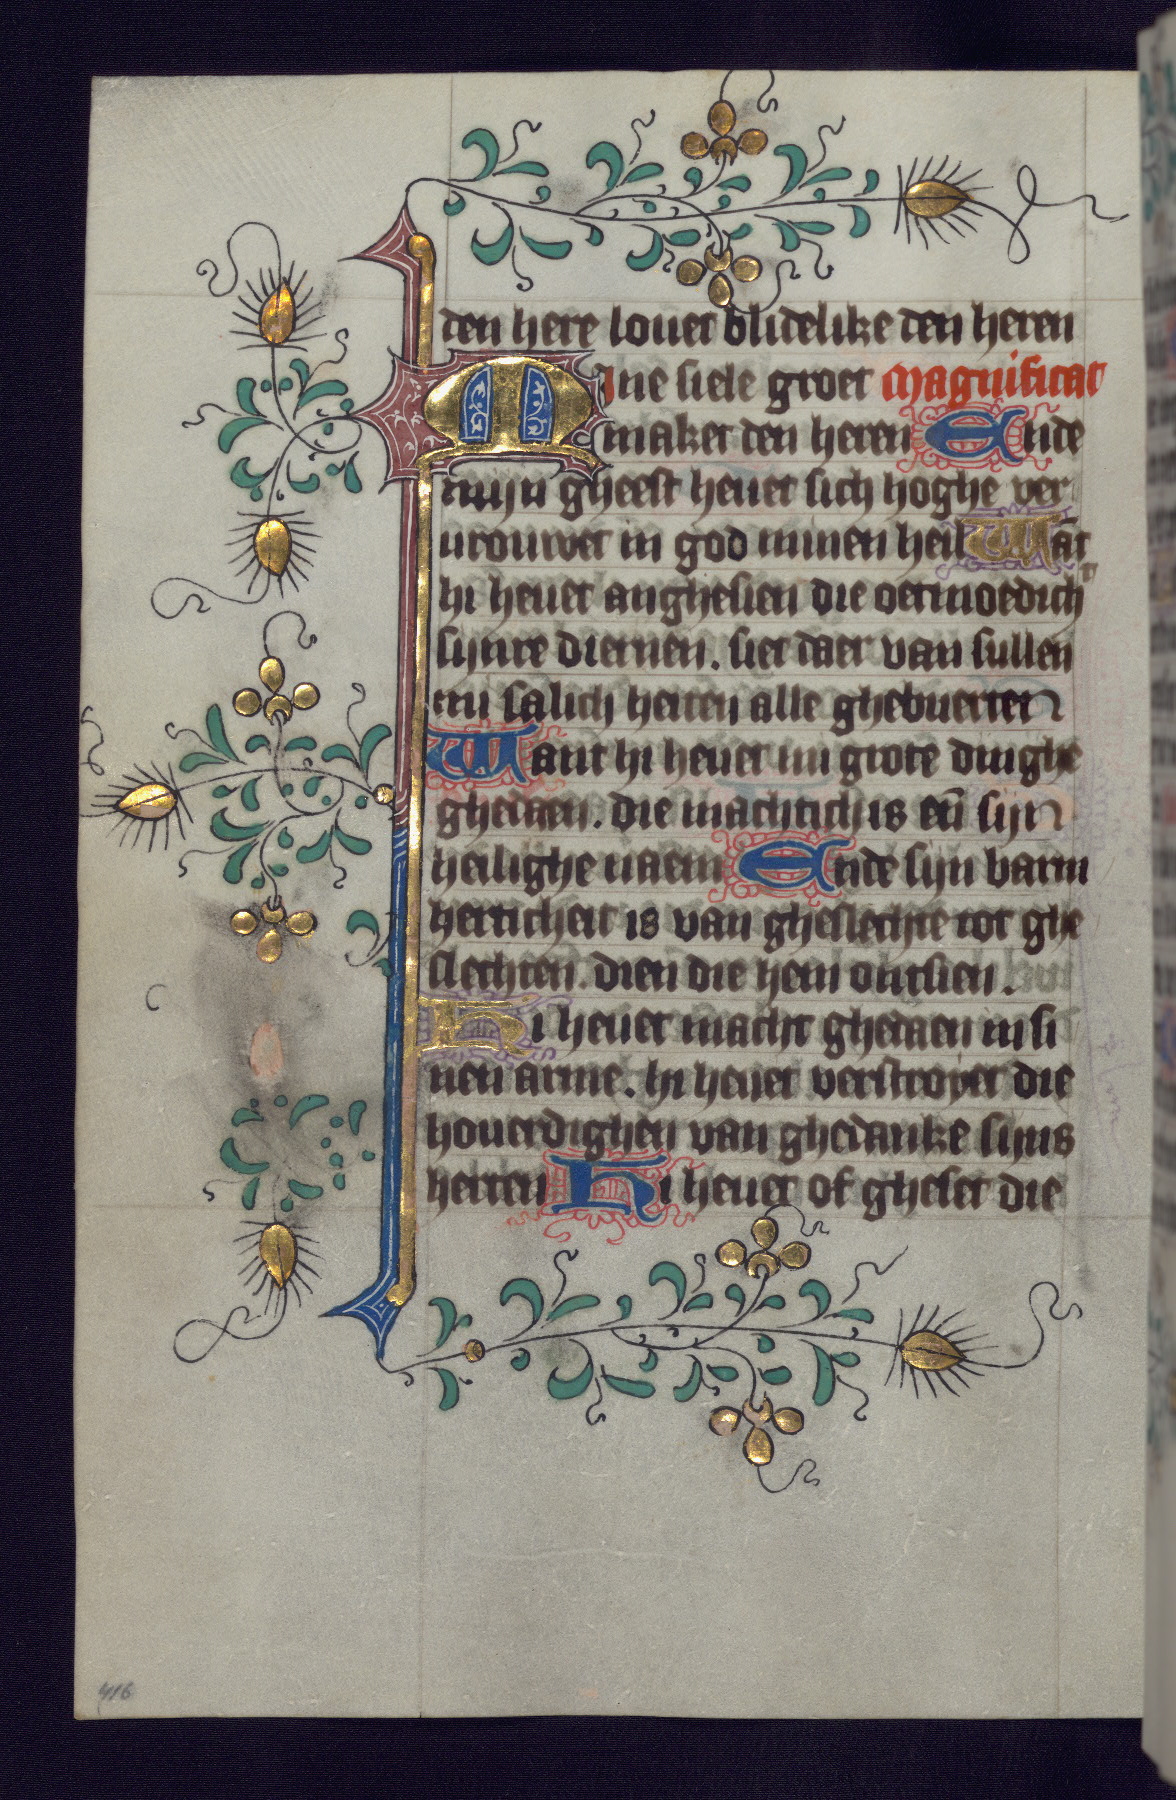 den here louet blidelike den heren
Mine siele groet Magnificat
maket den heren Ende
mijn gheest heuet sich hoghe ver
urouwet in god minen heil Wāt
hi heuet anghesien die oetmoedich
synre diernen. siet daer van sullen
mi salich heiten alle ghebuerten
Want hi heuet mi grote dinghe
ghedaen. die machtich is eñ sijn
heilighe naem Ende sijn barm
herticheit is van gheslechte tot ghe
slechten. dien die hem ontsien.
Hi heuet macht ghedaen in si
nen arme. hi heuet verstroyet die
houerdighen van ghedanke sijns
herten Hi heuet of gheset die
416